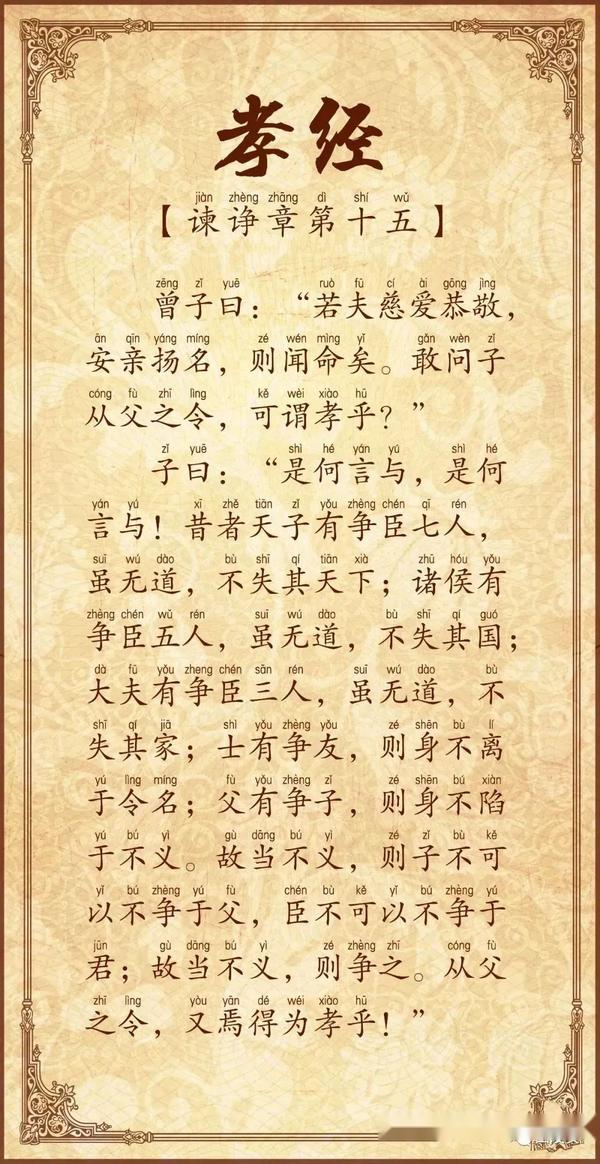 孝经
jiàn zhèng zhāng dì shí wǔ
【谏诤章第十五】
zēng zǐ yuē ruò fū cí ài gōng jìng
曾子曰：“若夫慈爱恭敬，
ān qīn yáng míng zé wén mìng yǐ gǎn wèn zǐ
安亲扬名，则闻命矣。敢问子
cóng fù zhī lìng kě wèi xiào hū
从父之令，可谓孝乎？”
zǐ yuē shì hé yán yú shì hé
子曰：“是何言与，是何
yán yú xī zhě tiān zǐ yǒu zhèng chén qī rén
言与！昔者天子有争臣七人，
suī wú dào bù shī qí tiān xià zhū hóu yǒu
虽无道，不失其天下；诸侯有
zhèng chén wǔ rén suī wú dào bù shī qí guó
争臣五人，虽无道，不失其国；
dà fū yǒu zheng chén sān rén suī wú dào bù
大夫有争臣三人，虽无道，不
shī qí jiā shì yǒu zhèng yǒu zé shēn bù lí
失其家；士有争友，则身不离
yú lìng míng fù yǒu zhèng zǐ zé shēn bú xiàn
于令名；父有争子，则身不陷
yú bú yì gù dāng bú yì zé zǐ bù kě
于不义。故当不义，则子不可
yǐ bú zhèng yú fù chén bù kě yǐ bú zhèng yú
以不争于父，臣不可以不争于
jūn gù dāng bú yì zé zhèng zhī cóng fù
君；故当不义，则争之。从父
zhī lìng yòu yān dé wéi xiào hū
之令，又焉得为孝乎！”